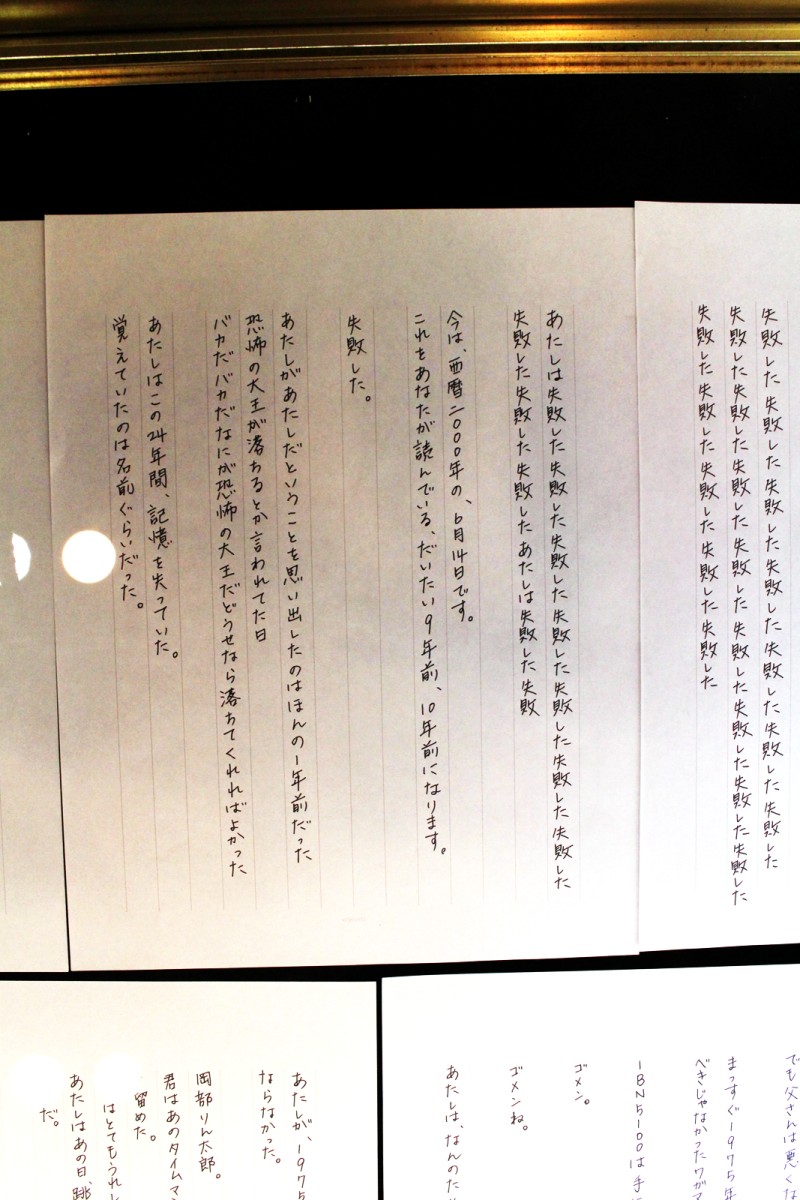 失敗した失敗した失敗した失敗した失敗した失敗した失敗した
失敗した失敗した失敗した失敗した失敗した失敗した失敗した失敗した
失敗した失敗した失敗した失敗した失敗した
あたしは失敗した失敗した失敗した失敗した失敗した失敗した失敗した
失敗した失敗した失敗したあたしは失敗した失敗
今は、西暦二000年の、6月14日です。
これをあなたが読んでいる、だいたい9年前、10年前になります。
失敗した。
あたしがあたしだということを思い出したのはほんの1年前だった
恐怖の大王が落ちるとか言われてた日
バカだバカだなにが恐怖の大王だどうせなら落ちてくれればよかった
あたしはこの24年間、記憶を失っていた。
覚えていたのは名前ぐらいだった。
でも父さんは悪くな
まっすぐ1975年
べきじゃなかったワガマ
IBN5100は手に
ゴメン。
ゴメンね。
あたしは、なんのた
あたしが、1975
ならなかった。
岡部りん太郎。
君はあのタイムマシ
留めた。
はとてもうれし
あたしはあの日、跳
だ。